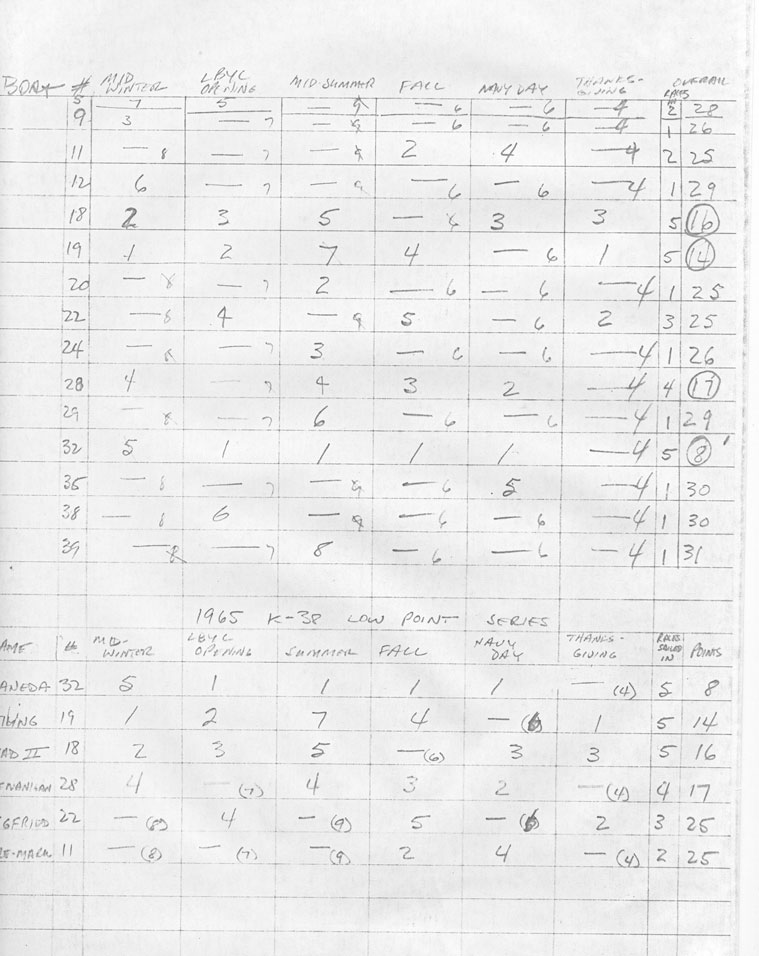 BOAT # MID WINTER LBYC OPENING MID-SUMMER FALL NAVY DAY THANKS-GIVING RACES OVERALL
5 7 5 — 9 — 6 — 6 — 4 2 28
9 3 — 7 — 9 — 6 — 6 — 4 1 26
11 — 8 — 7 — 9 2 4 — 4 2 25
12 6 — 7 — 9 — 6 — 6 — 4 1 29
18 2 3 5 — 6 3 3 5 16
19 1 2 7 4 — 6 1 5 14
20 — 8 — 7 2 — 6 — 6 — 4 1 25
22 — 8 4 — 9 5 — 6 2 3 25
24 — 8 — 7 3 — 6 — 6 — 4 1 26
28 4 — 7 4 3 2 — 4 4 17
29 — 8 — 7 6 — 6 — 6 — 4 1 29
32 5 1 1 1 1 — 4 5 8
35 — 8 — 7 — 9 — 6 5 — 4 1 30
38 — 8 6 — 9 — 6 — 6 — 4 1 30
39 — 8 — 7 8 — 6 — 6 — 4 1 31
1965 K-38 LOW POINT SERIES
AME # MID-WINTER LBYC OPENING SUMMER FALL NAVY DAY THANKS-GIVING RACES SAILED IN POINTS
ANEDA 32 5 1 1 1 1 — (4) 5 8
LING 19 1 2 7 4 — (6) 1 5 14
AD II 18 2 3 5 — (6) 3 3 5 16
ENANIGAN 28 4 — (7) 4 3 2 — (4) 4 17
GFRIED 22 — (8) 4 — (9) 5 — (6) 2 3 25
E-MARK 11 — (8) — (7) — (9) 2 4 — (4) 2 25